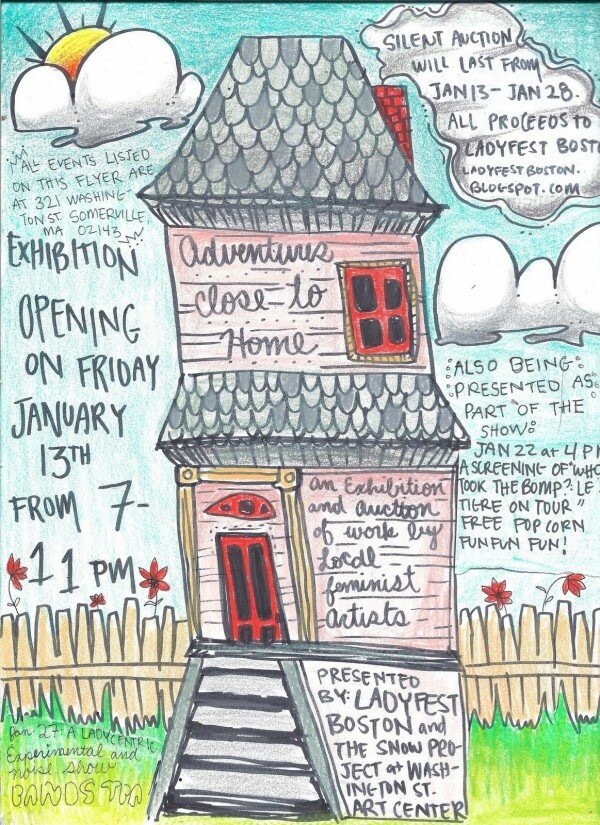 SILENT AUCTION
WILL LAST FROM
JAN 13 - JAN 28.
ALL PROCEEDS TO
LADYFEST BOST
LADYFESTBOSTON.
BLOGSPOT.COM
ALL EVENTS LISTED
ON THIS FLYER ARE
AT 321 WASHING-
TON ST. SOMERVILLE,
MA 02143
EXHIBITION
OPENING
ON FRIDAY
JANUARY
13TH
FROM 7-
11 PM
Adventures
close to
Home
an Exhibition
and auction
of work by
Local
feminist
artists
:ALSO BEING:
:PRESENTED AS:
PART OF THE
SHOW:
JAN 22 at 4 P
A SCREENING OF "WHO
TOOK THE BOMP?: LE
TIGRE ON TOUR"
FREE POPCORN
FUN FUN FUN!
PRESENTED
BY: LADYFEST
BOSTON and
THE SNOW PRO-
JECT at WASH-
INGTON ST.
ART CENTER
Jan. 27: A LADYCENTRIC
Experimental and
noise show
BANDS TBA